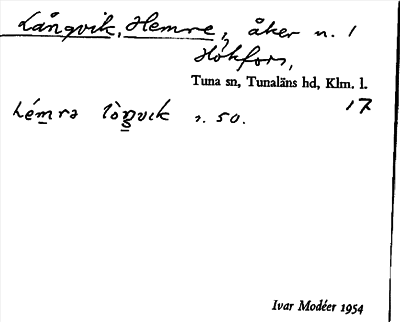 Långvik, Hemre, åker n. 1
Hökfors,
Tuna sn, Tunaläns hd, Klm. l.
17
hémrə lòŋvιk s. 50.
Ivar Modéer 1954